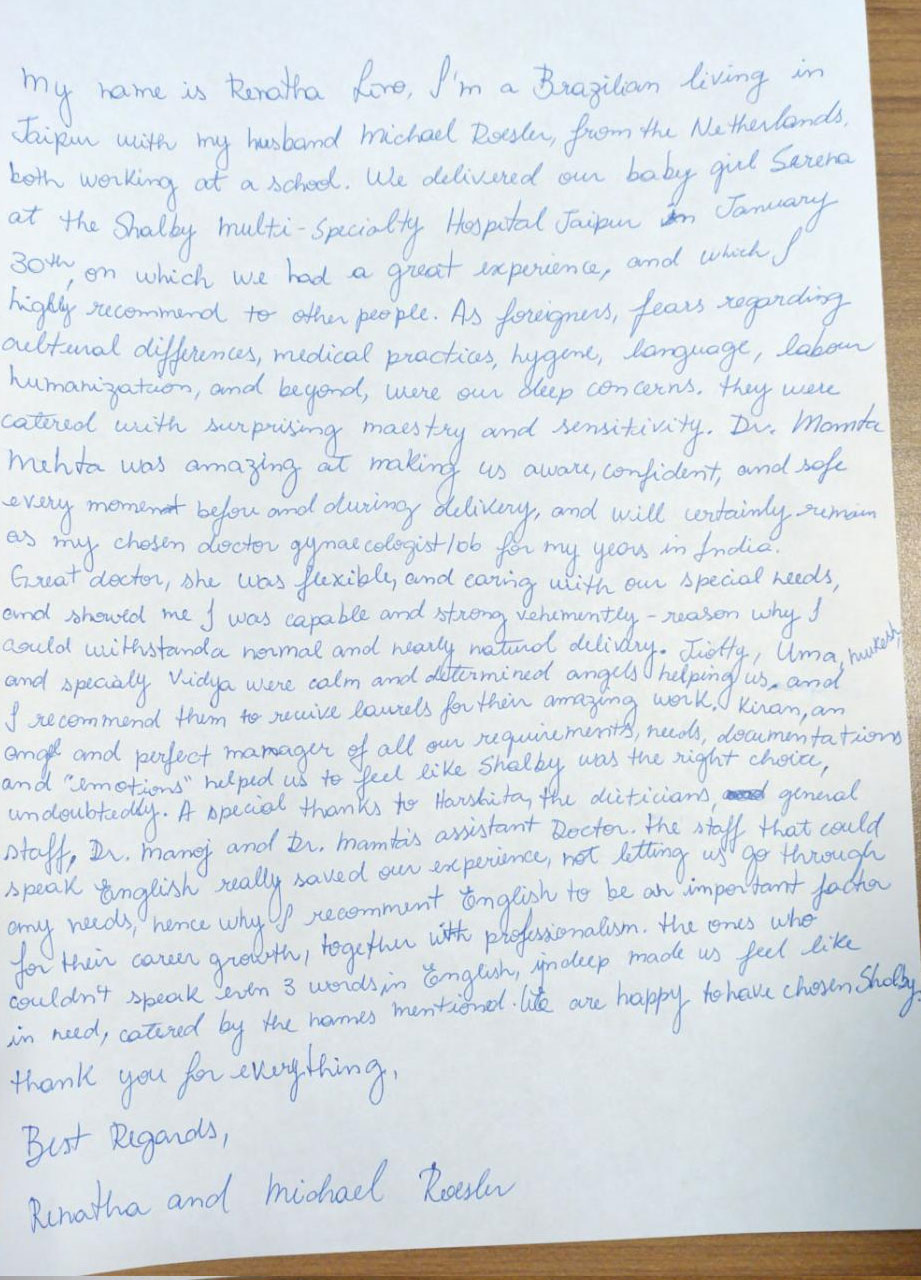 My name is Renatha Lino, I'm a Brazilian living in
Jaipur with my husband Michael Roesler, from the Netherlands,
both working at a school. We delivered our baby girl Serena
at the Shalby Multi-Specialty Hospital Jaipur in January
30th, on which we had a great experience, and which I
highly recommend to other people. As foreigners, fears regarding
cultural differences, medical practices, hygene, language, labour
humanization, and beyond, were our deep concerns. They were
catered with surprising maestry and sensitivity. Dr. Mamta
Mehta was amazing at making us aware, confident, and safe
every moment before and during delivery, and will certainly remain
as my chosen doctor gynaecologist/ob for my years in India.
Great doctor, she was flexible, and caring with our special needs,
and showed me I was capable and strong vehemently - reason why I
could withstand a normal and nearly natural delivery. Uma, Mukesh,
and specialy Vidya were calm and determined angels helping us, and
I recommend them to receive laurels for their amazing work. Kiran, an
angel and perfect manager of all our requirements, needs, documentations
and "emotions" helped us to feel like Shalby was the right choice,
undoubtedly. A special thanks to Harshita, the dieticians, general
staff, Dr. Manoj and Dr. Mamtas assistant Doctor. The staff that could
speak English really saved our experience, not letting us go through
any needs, hence why I recomment English to be an important factor
for their career growth, together with professionalism. The ones who
couldn't speak even 3 words in English, indeep made us feel like
in need, catered by the names mentioned. We are happy to have chosen Shalby
thank you for everything,
Best Regards,
Renatha and Michael Roesler